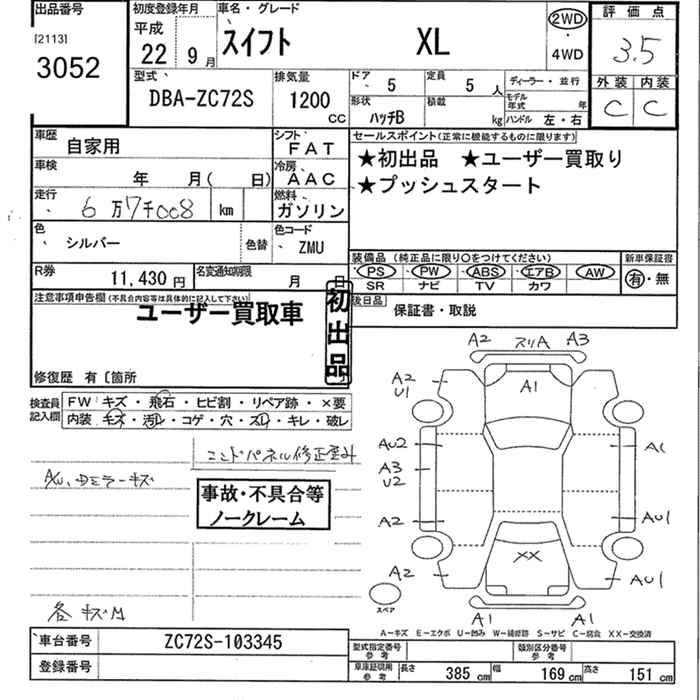 出品番号 初度登録年月 車名・グレード 2WD 評価点
[2113] 平成 スイフト XL 3.5
3052 22年 9月 4WD
外装 内装
C C
型式 排気量 ドア 5 定員 5人 ディーラー・並行
DBA-ZC72S 1200CC 形状 ハッチB 積載 kg モデル年式 年
ハンドル 左・右
車歴 自家用 シフト FAT セールスポイント(正常に機能するものに限ります)
車検 年 月( 日) 冷房 AAC ★初出品 ★ユーザー買取り
走行 6万7千008 km 燃料 ガソリン ★プッシュスタート
色 シルバー 色替 色コード ZMU
装備品(純正品に限り○をつけてください) 新車保証書
PS PW ABS エアB AW 有・無
SR ナビ TV カワ
R券 11,430円 名変通知期限 月 日
後日品 保証書・取説
注意事項申告欄(不具合内容等は具体的に記入して下さい)
ユーザー買取車
初出品
修復歴 有〔箇所
検査員記入欄 FW キズ・飛石・ヒビ割・リペア跡・×要
内装 キズ・汚レ・コゲ・穴・スレ・キレ・破レ
A2 スリA A3
A2 U1 A1
AU2 A1
A3 U2
A2 AU1
XX
A2 AU1
スペア
A1 A1
エンドパネル修正歪み
AU、Dミラーキズ
事故・不具合等
ノークレーム
各キズM
A-キズ E-エクボ U-凹み W-補修跡 S-サビ C-腐食 XX-交換済
車台番号 ZC72S-103345 型式指定番号 参考 類別区分番号 参考
登録番号 車庫証明用 参考 長さ 385cm 幅 169cm 高さ 151cm